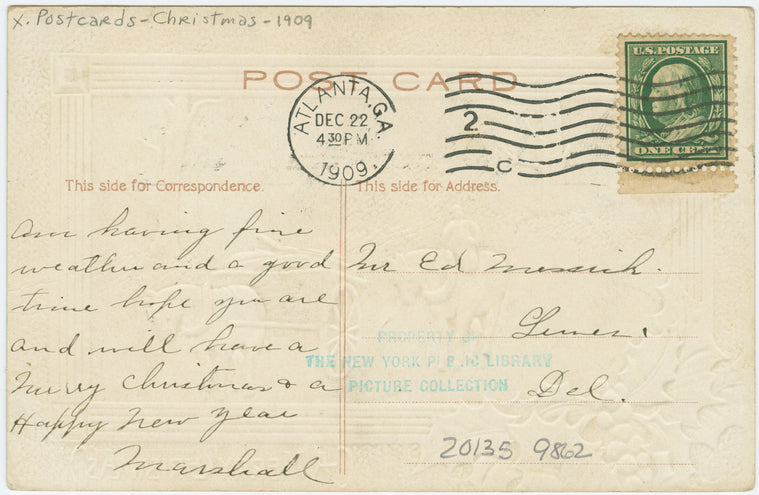 x. Postcards - Christmas - 1909
POST CARD
U.S. POSTAGE
ONE CENT
ATLANTA, GA.
DEC 22
4 30 PM
1909
2
C
This side for Correspondence.
This side for Address.
Am having fine
weather and a good
time hope you are
and will have a
Merry Christmas & a
Happy New Year
Marshall
Mr Ed Messick.
Del.
PROPERTY OF
THE NEW YORK PUBLIC LIBRARY
PICTURE COLLECTION
20135 9862